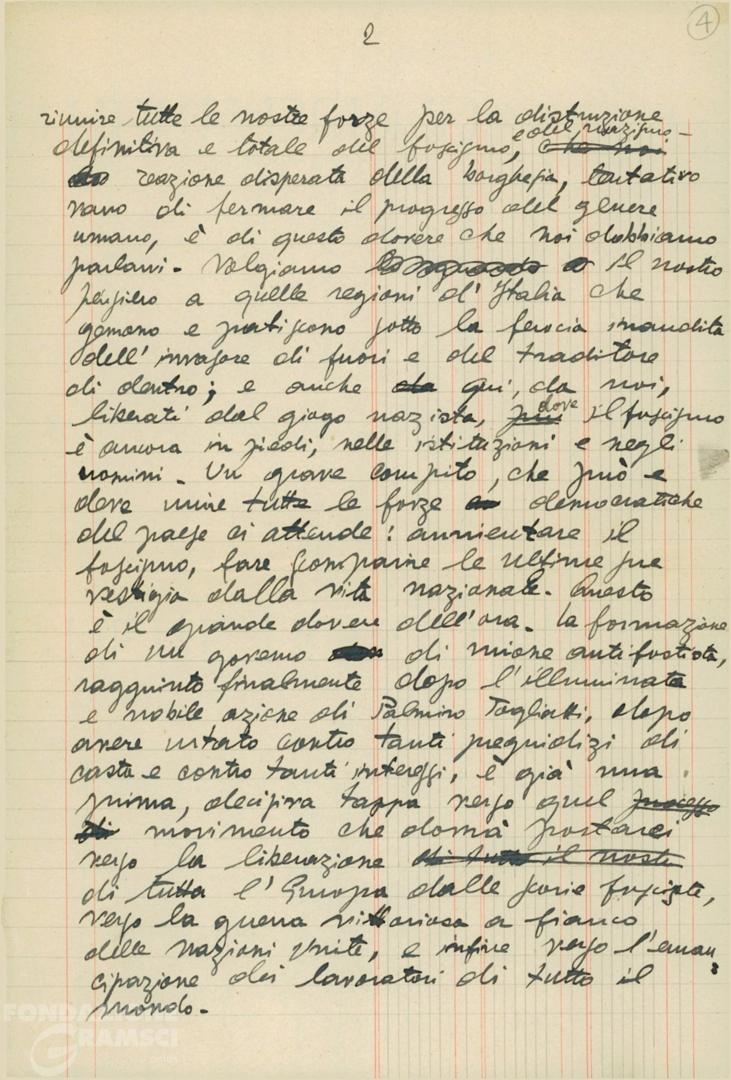 2
4
riunire tutte le nostre forze per la distruzione
definitiva e totale del fascismo, e del nazismo - che noi
reazione disperata della borghesia, tentativo
vano di fermare il progresso del genere
umano, è di questo dovere che noi dobbiamo
parlarvi. Volgiamo il nostro
pensiero a quelle regioni d'Italia che
gemono e patiscono sotto la ferocia inaudita
dell'invasore di fuori e del traditore
di dentro; e anche qui, da noi,
liberati dal giogo nazista, dove il fascismo
è ancora in piedi, nelle istituzioni e negli
uomini. Un grave compito, che può e
deve unire tutte le forze democratiche
del paese ci attende: annientare il
fascismo, fare scomparire le ultime sue
vestigia dalla vita nazionale. Questo
è il grande dovere dell'ora. La formazione
di un governo di unione antifascista,
raggiunto finalmente dopo l'illuminata
e nobile azione di Palmiro Togliatti, dopo
avere urtato contro tanti pregiudizi di
casta e contro tanti interessi, è già una
prima, decisiva tappa verso quel processo
di movimento che dovrà portarci
verso la liberazione di tutto il nostr
di tutta l'Europa dalle scorie fasciste,
verso la guerra vittoriosa a fianco
delle Nazioni Unite, e infine verso l'eman
cipazione dei lavoratori di tutto il
mondo.
FONDAZIONE
GRAMSCI